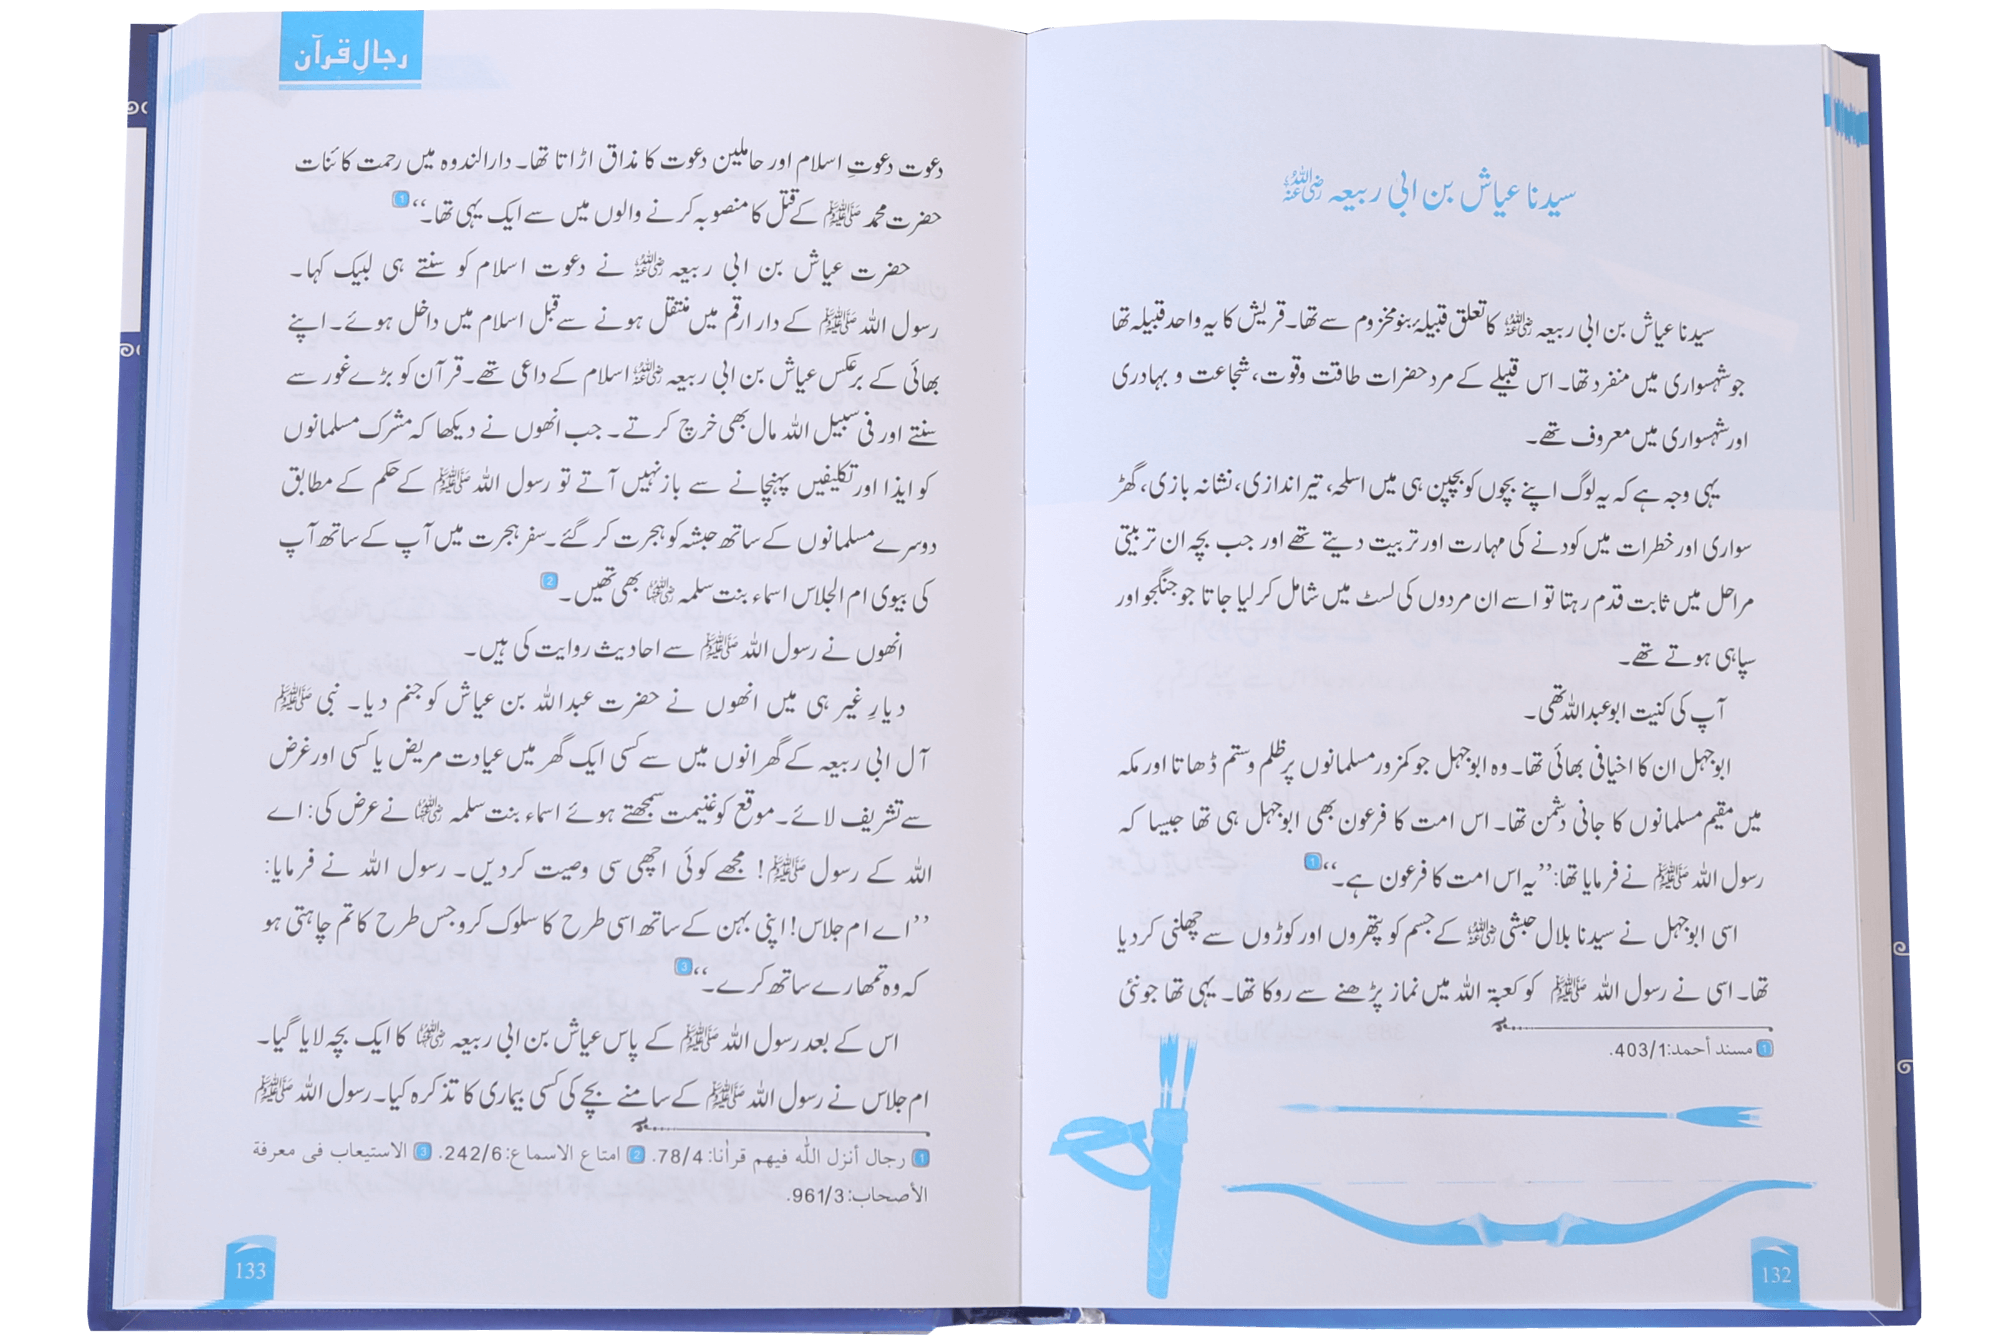 سیدنا عیاش بن ابی ربیعہ رضی اللہ عنہ
سیدنا عیاش بن ابی ربیعہ رضی اللہ عنہ کا تعلق قبیلۂ بنو مخزوم سے تھا۔ قریش کا یہ واحد قبیلہ تھا
جو شہسواری میں منفرد تھا۔ اس قبیلے کے مرد حضرات طاقت وقوت، شجاعت و بہادری
اور شہسواری میں معروف تھے۔
یہی وجہ ہے کہ یہ لوگ اپنے بچوں کو بچپن ہی میں اسلحہ، تیر اندازی، نشانہ بازی، گھڑ
سواری اور خطرات میں کودنے کی مہارت اور تربیت دیتے تھے اور جب بچہ ان تربیتی
مراحل میں ثابت قدم رہتا تو اسے ان مردوں کی لسٹ میں شامل کرلیا جاتا جو جنگجو اور
سپاہی ہوتے تھے۔
آپ کی کنیت ابو عبداللہ تھی۔
ابوجہل ان کا اخیافی بھائی تھا۔ وہ ابوجہل جو کمزور مسلمانوں پر ظلم وستم ڈھاتا اور مکہ
میں مقیم مسلمانوں کا جانی دشمن تھا۔ اس امت کا فرعون بھی ابوجہل ہی تھا جیسا کہ
رسول اللہ ﷺ نے فرمایا تھا: ’’یہ اس امت کا فرعون ہے۔‘‘ 1
اسی ابوجہل نے سیدنا بلال حبشی رضی اللہ عنہ کے جسم کو پتھروں اور کوڑوں سے چھلنی کردیا
تھا۔ اسی نے رسول اللہ ﷺ کو کعبۃ اللہ میں نماز پڑھنے سے روکا تھا۔ یہی تھا جو نئی
1 مسند أحمد: 403/1.
132
رجالِ قرآن
دعوت دعوتِ اسلام اور حاملین دعوت کا مذاق اڑاتا تھا۔ دارالندوہ میں رحمت کائنات
حضرت محمد ﷺ کے قتل کا منصوبہ کرنے والوں میں سے ایک یہی تھا۔‘‘ 1
حضرت عیاش بن ابی ربیعہ رضی اللہ عنہ نے دعوت اسلام کو سنتے ہی لبیک کہا۔
رسول اللہ ﷺ کے دار ارقم میں منتقل ہونے سے قبل اسلام میں داخل ہوئے۔ اپنے
بھائی کے برعکس عیاش بن ابی ربیعہ رضی اللہ عنہ اسلام کے داعی تھے۔ قرآن کو بڑے غور سے
سنتے اور فی سبیل اللہ مال بھی خرچ کرتے۔ جب انھوں نے دیکھا کہ مشرک مسلمانوں
کو ایذا اور تکلیفیں پہنچانے سے باز نہیں آتے تو رسول اللہ ﷺ کے حکم کے مطابق
دوسرے مسلمانوں کے ساتھ حبشہ کو ہجرت کر گئے۔ سفر ہجرت میں آپ کے ساتھ آپ
کی بیوی ام الجلاس اسماء بنت سلمہ رضی اللہ عنہا بھی تھیں۔ 2
انھوں نے رسول اللہ ﷺ سے احادیث روایت کی ہیں۔
دیارِ غیر ہی میں انھوں نے حضرت عبداللہ بن عیاش کو جنم دیا۔ نبی ﷺ
آل ابی ربیعہ کے گھرانوں میں سے کسی ایک گھر میں عیادت مریض یا کسی اور غرض
سے تشریف لائے۔ موقع کو غنیمت سمجھتے ہوئے اسماء بنت سلمہ رضی اللہ عنہا نے عرض کی: اے
اللہ کے رسول ﷺ! مجھے کوئی اچھی سی وصیت کردیں۔ رسول اللہ نے فرمایا:
’’اے ام جلاس! اپنی بہن کے ساتھ اسی طرح کا سلوک کرو جس طرح کا تم چاہتی ہو
کہ وہ تمھارے ساتھ کرے۔‘‘ 3
اس کے بعد رسول اللہ ﷺ کے پاس عیاش بن ابی ربیعہ رضی اللہ عنہ کا ایک بچہ لایا گیا۔
ام جلاس نے رسول اللہ ﷺ کے سامنے بچے کی کسی بیماری کا تذکرہ کیا۔ رسول اللہ ﷺ
1 رجال أنزل الله فيهم قرانا: 78/4. 2 امتاع الاسماع: 242/6. 3 الاستيعاب فى معرفة
الأصحاب: 961/3.
133